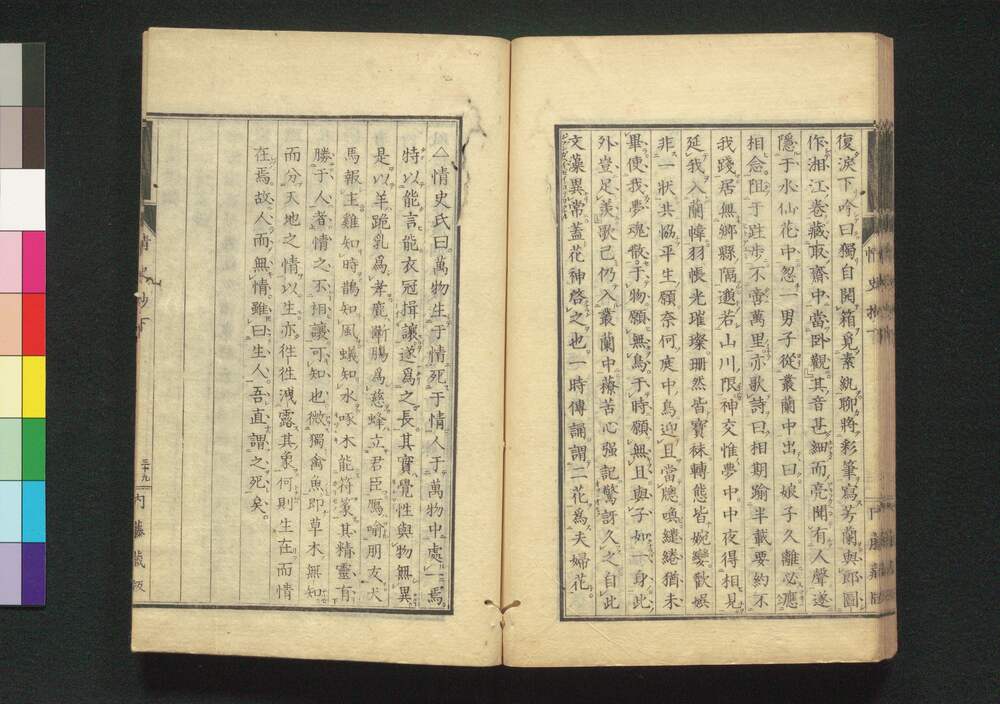 復淚下吟曰獨自開箱覓素紈聊將彩筆寫芳蘭與郎圖
作湘江卷藏取齋中當臥觀其音甚細而亮聞有人聲遂
隱于水仙花中忽一男子從叢蘭中出曰娘子久離必應
相念阻于跬步不啻萬里亦歌詩曰相期踰半載要約不
我踐居無鄉縣隔邈若山川限神交惟夢中中夜得相見
延我入蘭幃羽帳光璀璨珊然皆寶袜轉態皆婉孌歡娛
非一狀共協平生願奈何庭中鳥迎旦當牕喚繾綣猶未
畢使我夢魂散于物願無鳥于時願無旦與子如一身此
外豈足羨歌已仍入叢蘭中蓀苦心强記驚訝久之自此
文藻異常蓋花神啓之也一時傳誦謂二花爲夫婦花
情史氏曰萬物生于情死于情人于萬物中處一焉
特以能言能衣冠揖讓遂爲之長其實覺性與物無異
是以羊跪乳爲孝鹿斷腸爲慈蜂立君臣鴈喻朋友犬
馬報主雞知時鵲知風蟻知水啄木能符篆其精靈有
勝于人者情之不相讓可知也微獨禽魚即草木無知
而分天地之情以生亦往往洩露其象何則生在而情
在焉故人而無情雖曰生人吾直謂之死矣
三十九
內藤藏版